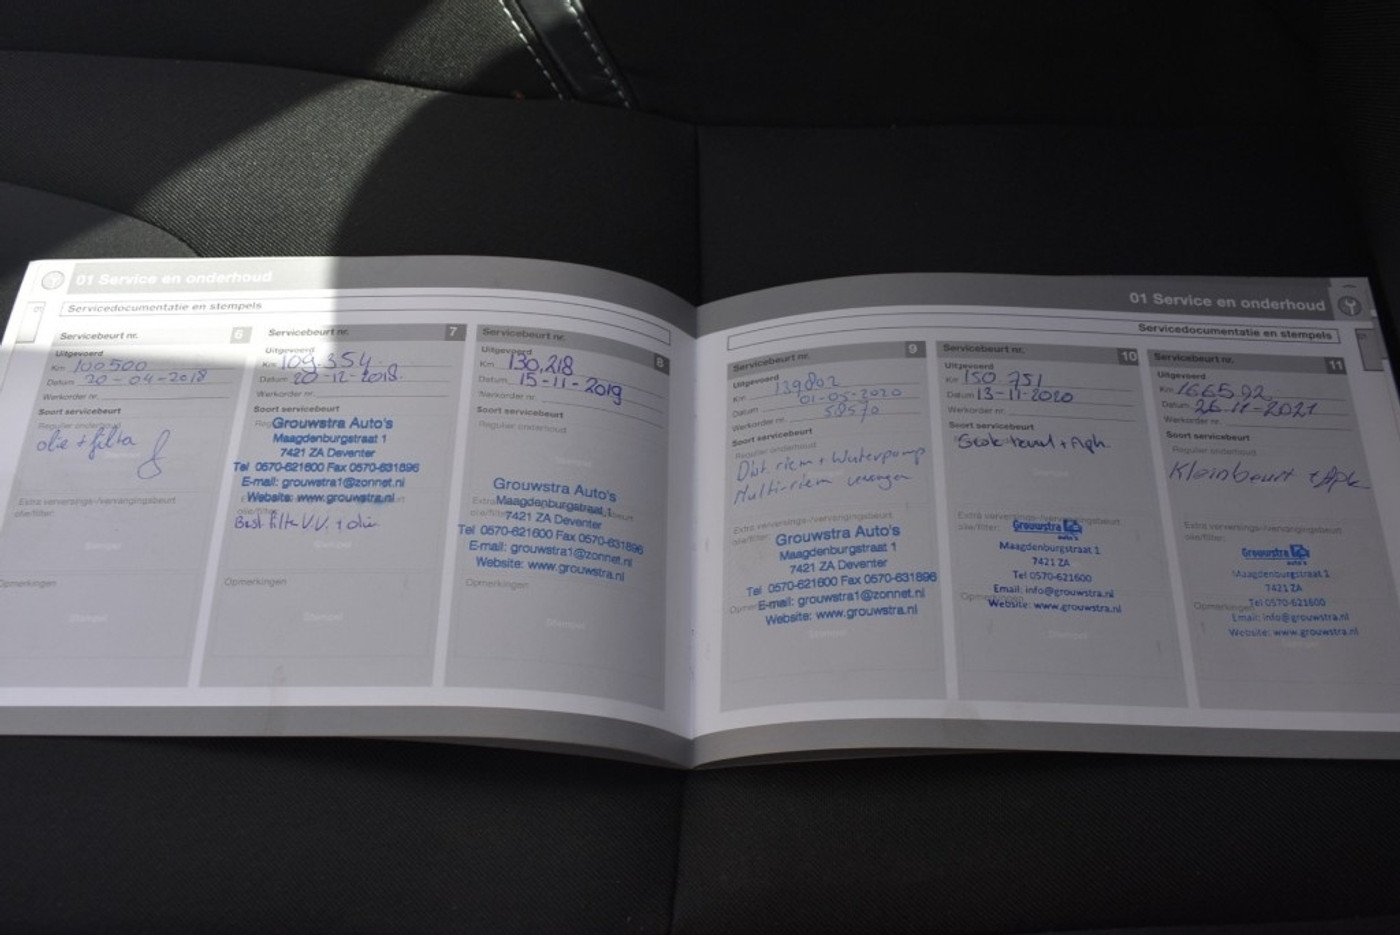 01 Service en onderhoud
Servicedocumentatie en stempels
Servicebeurt nr. 6
Uitgevoerd
Km 100500
Datum 20-04-2018
Werkorder nr.
Soort servicebeurt
Regulier onderhoud
olie + filta
Extra verversings-/vervangingsbeurt
olie/filter:
Opmerkingen
Servicebeurt nr. 7
Uitgevoerd
Km 109.354
Datum 20-12-2018.
Werkorder nr.
Soort servicebeurt
Grouwstra Auto's
Maagdenburgstraat 1
7421 ZA Deventer
Tel 0570-621600 Fax 0570-631896
E-mail: grouwstra1@zonnet.nl
Website: www.grouwstra.nl
olie/filter:
V.V. + olie
Opmerkingen
Servicebeurt nr. 8
Uitgevoerd
Km 130,218
Datum 15-11-2019
Werkorder nr.
Soort servicebeurt
Regulier onderhoud
Grouwstra Auto's
Maagdenburgstraat 1
7421 ZA Deventer
Tel 0570-621600 Fax 0570-631896
E-mail: grouwstra1@zonnet.nl
Website: www.grouwstra.nl
Opmerkingen
01 Service en onderhoud
Servicedocumentatie en stempels
Servicebeurt nr. 9
Uitgevoerd
Km 139802
Datum 01-05-2020
Werkorder nr. 58570
Soort servicebeurt
Regulier onderhoud
Dist. riem + Waterpomp
Multi-riem vervangen
Extra verversings-/vervangingsbeurt
olie/filter:
Grouwstra Auto's
Maagdenburgstraat 1
7421 ZA Deventer
Tel 0570-621600 Fax 0570-631896
E-mail: grouwstra1@zonnet.nl
Website: www.grouwstra.nl
Servicebeurt nr. 10
Uitgevoerd
Km 150.751
Datum 13-11-2020
Werkorder nr.
Soort servicebeurt
Regulier onderhoud
Extra verversings-/vervangingsbeurt
olie/filter:
Grouwstra
auto's
Maagdenburgstraat 1
7421 ZA
Tel 0570-621600
Email: info@grouwstra.nl
Website: www.grouwstra.nl
Servicebeurt nr. 11
Uitgevoerd
Km 166592
Datum 26-11-2021
Werkorder nr.
Soort servicebeurt
Regulier onderhoud
Kleinbeurt + Apk
Extra verversings-/vervangingsbeurt
olie/filter:
Grouwstra
auto's
Maagdenburgstraat 1
7421 ZA
Tel 0570-621600
Email: info@grouwstra.nl
Website: www.grouwstra.nl